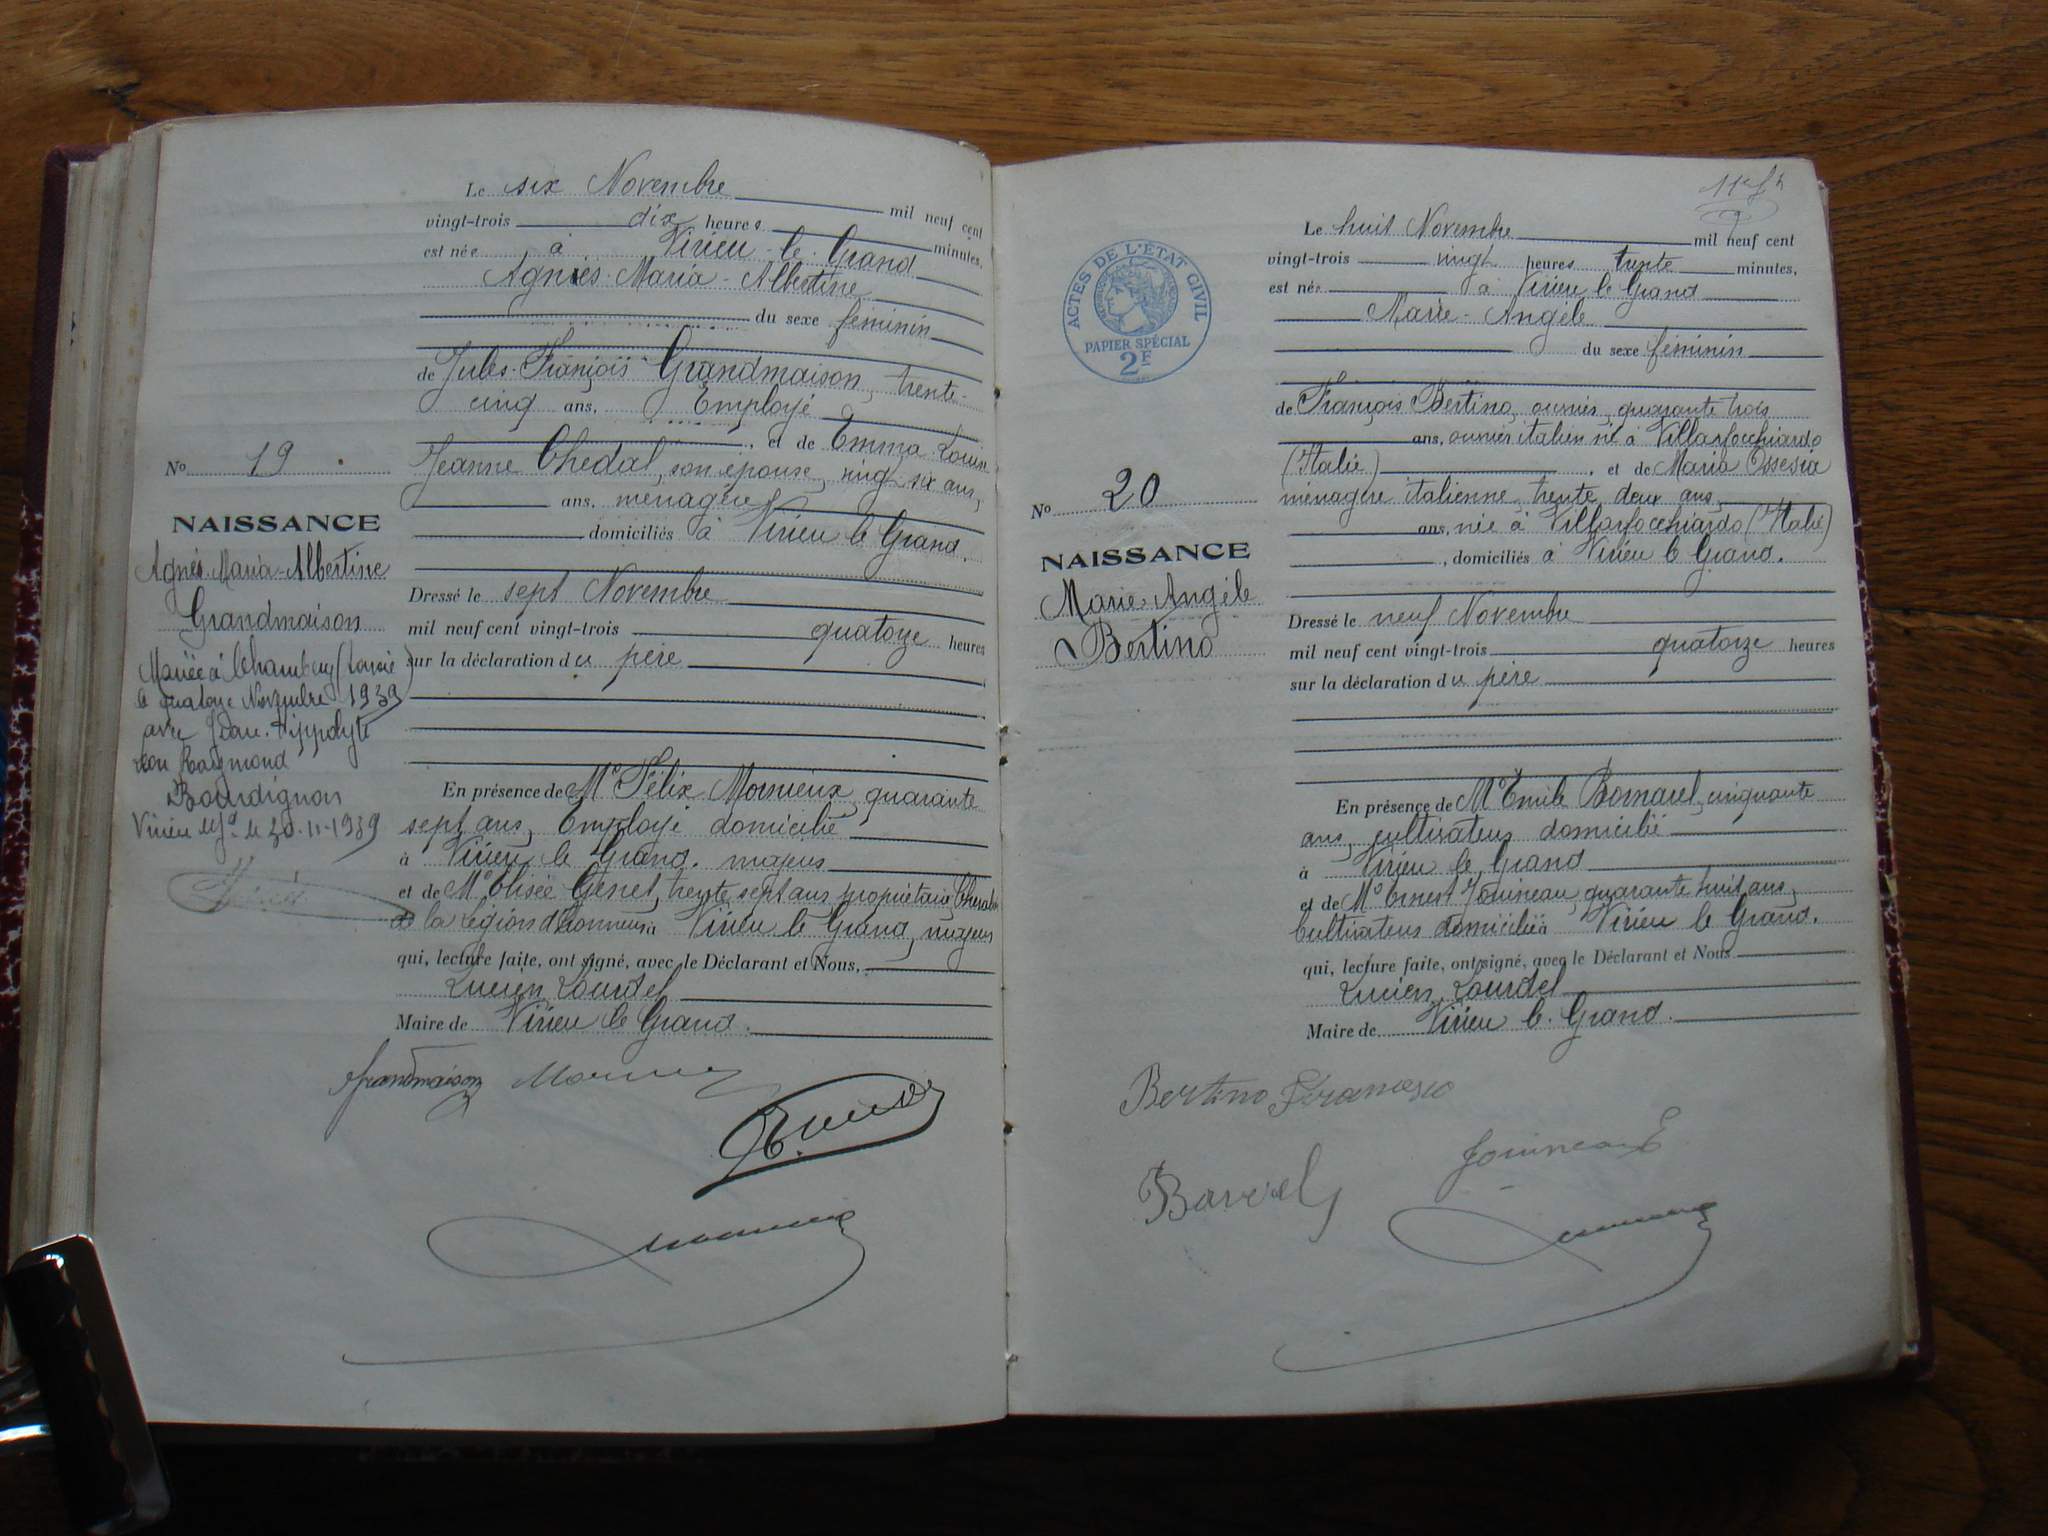 Le six Novembre mil neuf cent
vingt-trois dix heures minutes,
est née à Virieu-le-Grand
Agnès-Maria-Albertine
du sexe féminin
de Jules-François Grandmaison, trente-
cinq ans, Employé
, et de Emma-Louise
Jeanne Chedal, son épouse, vingt six ans,
ans, ménagère
domiciliés à Virieu le Grand.
No 19
NAISSANCE
Agnès-Maria-Albertine
Grandmaison
Mariée à Chambéry (Savoie)
le quatorze Novembre 1939
avec Jean-Hippolyte
Léon Raymond
Bourdignon
Virieu le Gd le 30-11-1939
Dressé le sept Novembre
mil neuf cent vingt-trois quatorze heures
sur la déclaration du père
En présence de Mr Félix Mornieux, quarante
sept ans, Employé domicilié
à Virieu le Grand. majeur
et de Mr Elisée Genet, trente sept ans propriétaire, Chevalier
de la Légion d'Honneur à Virieu le Grand, majeur
qui, lecture faite, ont signé, avec le Déclarant et Nous,
Lucien Lourdel
Maire de Virieu le Grand.
Grandmaison
ACTES DE L'ÉTAT CIVIL
PAPIER SPÉCIAL
2F
Le huit Novembre mil neuf cent
vingt-trois vingt heures trente minutes,
est née à Virieu le Grand
Marie-Angèle
du sexe féminin
de François Bertino, ouvrier, quarante trois
ans, ouvrier italien né à Villarfocchiardo
(Italie) , et de Maria Ossesia
ménagère italienne, trente deux ans,
ans, née à Villarfocchiardo (Italie)
, domiciliés à Virieu le Grand.
No 20
NAISSANCE
Marie-Angèle
Bertino
Dressé le neuf Novembre
mil neuf cent vingt-trois quatorze heures
sur la déclaration du père
En présence de Mr Emile Bornarel, cinquante
ans, cultivateur domicilié
à Virieu le Grand
et de Mr Ernest Jouineau, quarante huit ans,
Cultivateur domicilié à Virieu le Grand.
qui, lecture faite, ont signé, avec le Déclarant et Nous
Lucien Lourdel
Maire de Virieu le Grand.
Bertino Francesco
Jouineau E